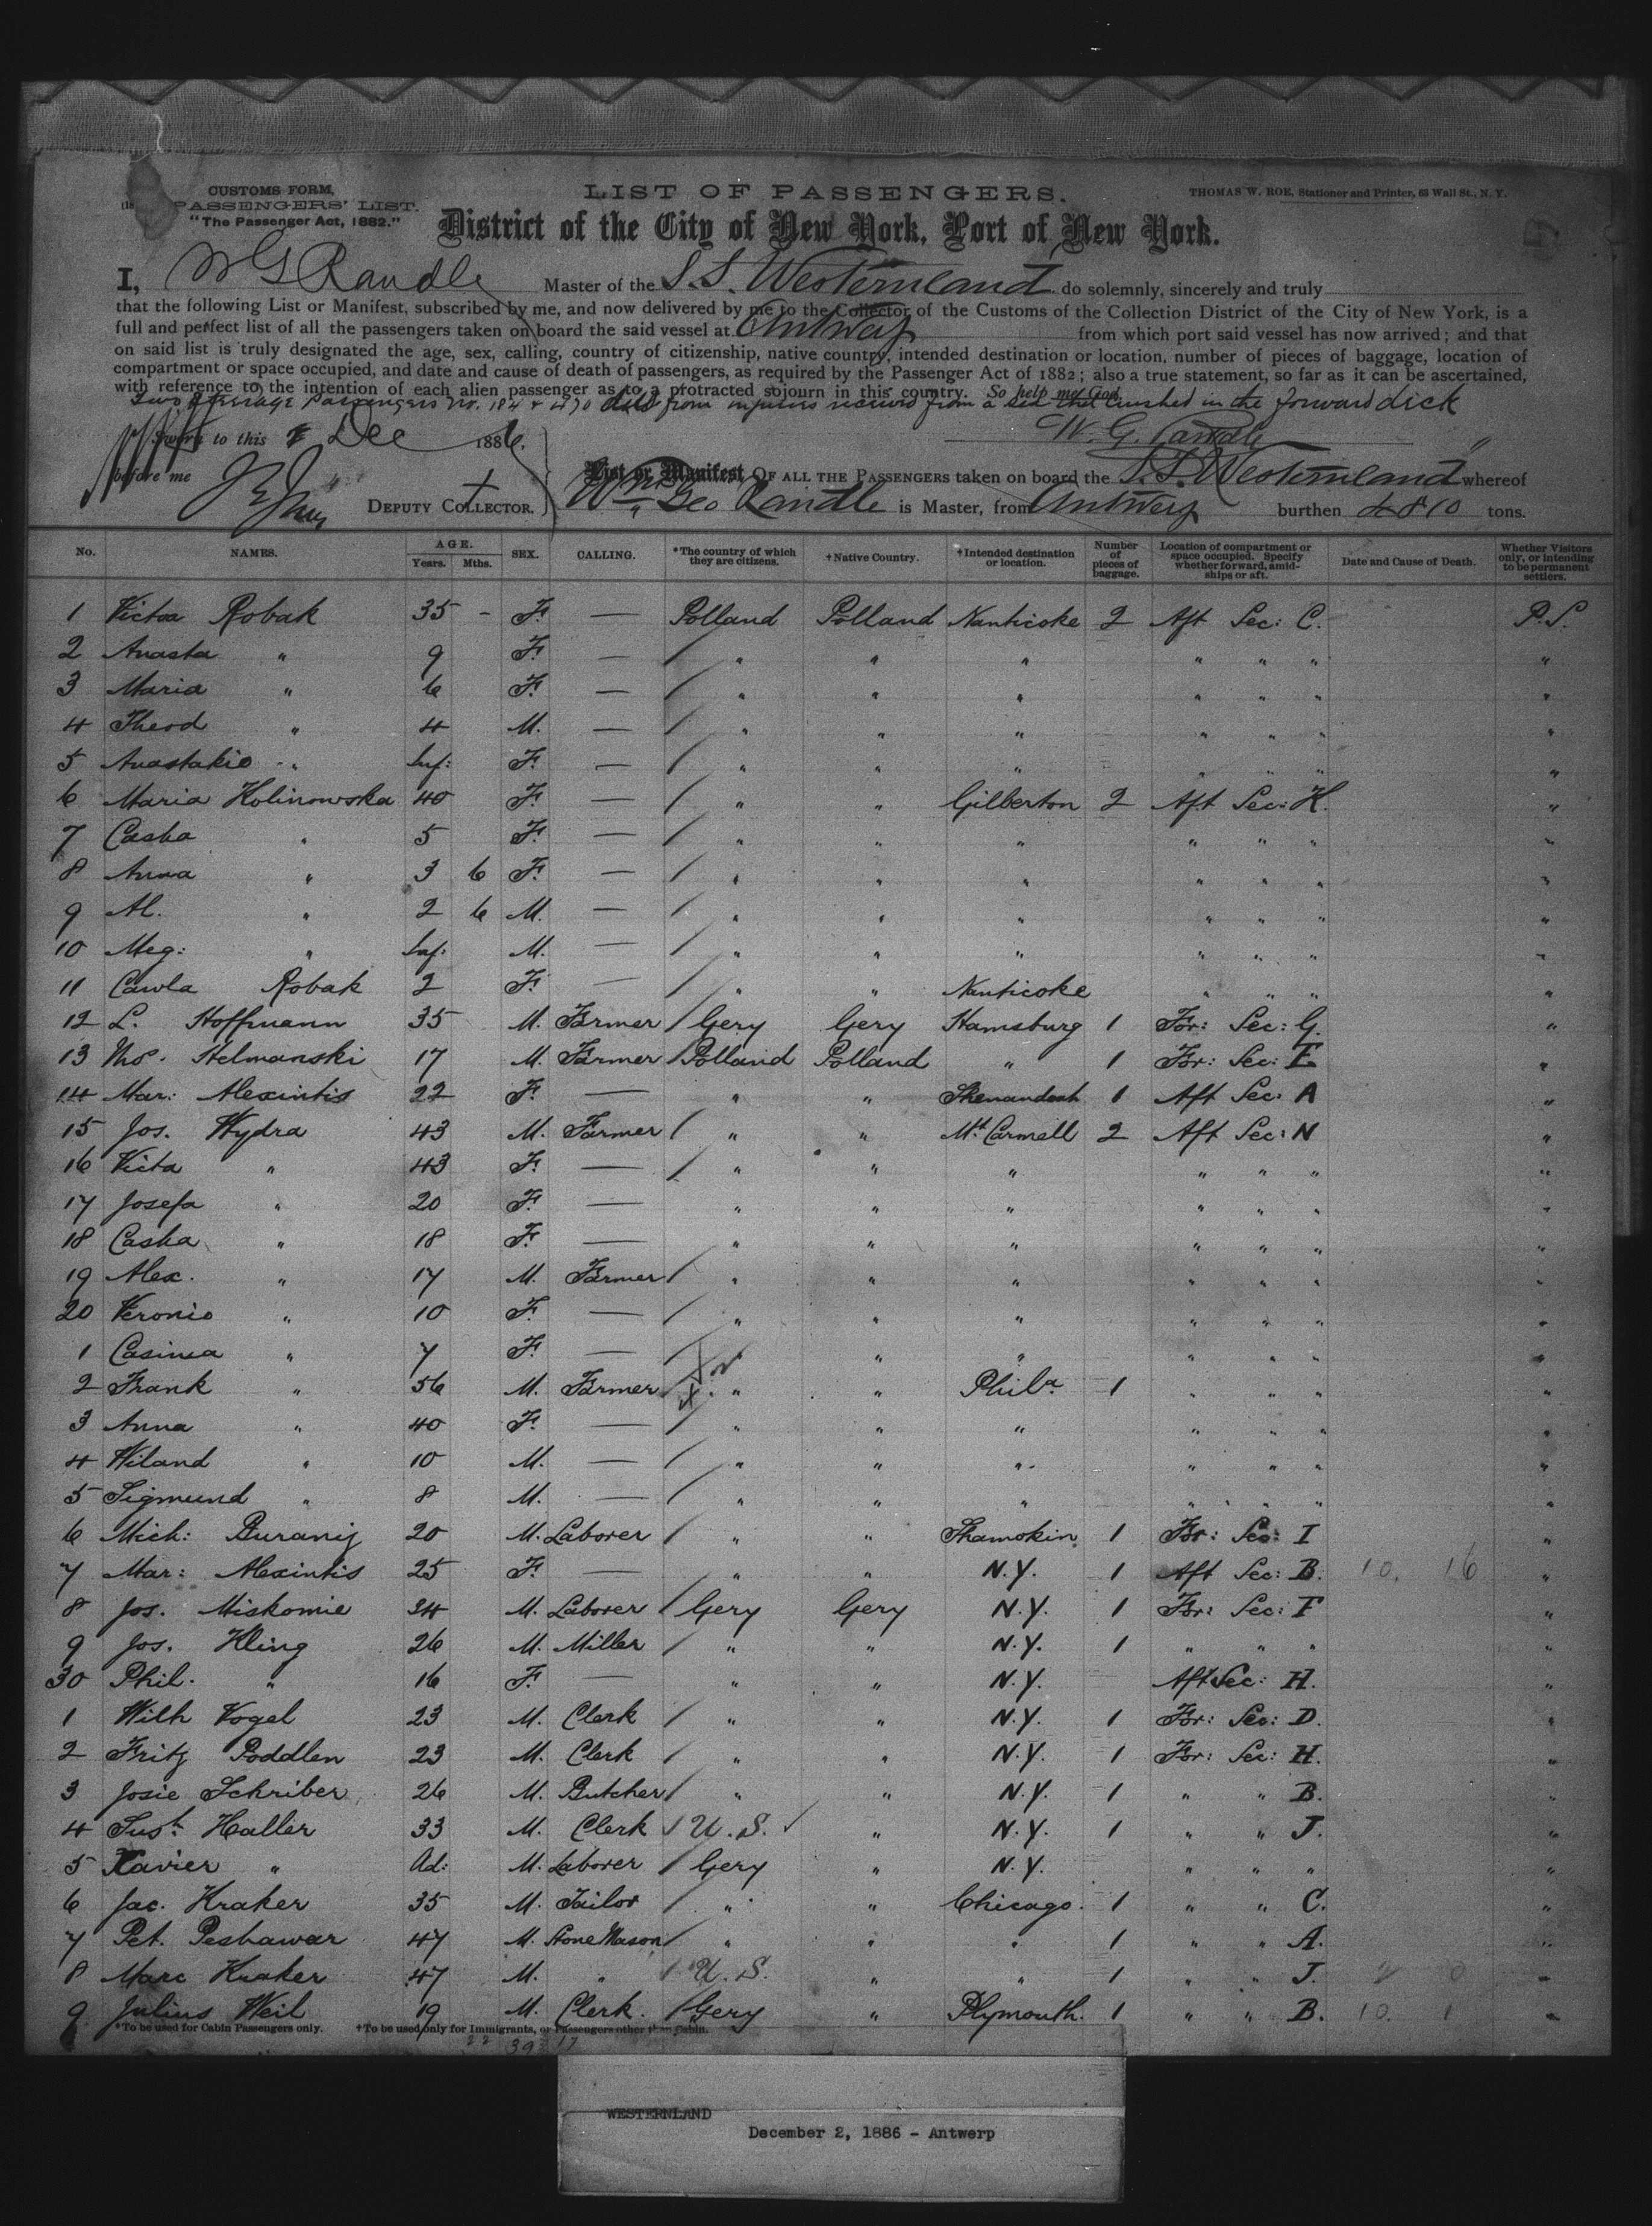 CUSTOMS FORM,
PASSENGERS' LIST.
"The Passenger Act, 1882."
LIST OF PASSENGERS.
THOMAS W. ROE, Stationer and Printer, 53 Wall St., N. Y.
District of the City of New York, Port of New York.
I, W G Randle Master of the S.S. Westernland do solemnly, sincerely and truly
that the following List or Manifest, subscribed by me, and now delivered by me to the Collector of the Customs of the Collection District of the City of New York, is a
full and perfect list of all the passengers taken on board the said vessel at Antwerp from which port said vessel has now arrived; and that
on said list is truly designated the age, sex, calling, country of citizenship, native country, intended destination or location, number of pieces of baggage, location of
compartment or space occupied, and date and cause of death of passengers, as required by the Passenger Act of 1882; also a true statement, so far as it can be ascertained,
with reference to the intention of each alien passenger as to a protracted sojourn in this country. So help me God.
Two steerage passengers No. 184 & 470 died from injuries received from a sea that crushed in the forward deck
W. G. Randle
Sworn to this 2 Dec 1886.
before me
DEPUTY COLLECTOR.
List or Manifest OF ALL THE PASSENGERS taken on board the S.S. Westernland whereof
Wm Geo Randle is Master, from Antwerp burthen 4810 tons.
No. NAMES. AGE. Years. Mths. SEX. CALLING. *The country of which they are citizens. †Native Country. †Intended destination or location. Number of pieces of baggage. Location of compartment or space occupied. Specify whether forward, amidships or aft. Date and Cause of Death. Whether Visitors only, or intending to be permanent settlers.
1 Victoa Robak 35 - F. — Polland Polland Nanticoke 2 Aft Sec: C. P.S.
2 Anasta " 9 F. — " " " " " " "
3 Maria " 6 F. — " " " " " " "
4 Theod " 4 M. — " " " " " " "
5 Anastakie " Inf: F. — " " " " " " "
6 Maria Holinowska 40 F. — " " Gilberton 2 Aft Sec: H. "
7 Casha " 5 F. — " " " " " " "
8 Anna " 3 6 F. — " " " " " " "
9 Al. " 2 6 M. — " " " " " " "
10 Meg: " Inf: M. — " " " " " " "
11 Cawla Robak 2 F. — " " Nanticoke " " " "
12 L. Hoffmann 35 M. Farmer Gery Gery Hamsburg 1 For: Sec: G. "
13 Ths. Helmanski 17 M. Farmer Polland Polland " 1 For: Sec: E "
14 Mar: Alexintis 22 F. — " " Shenandoah 1 Aft Sec: A "
15 Jos. Wydra 43 M. Farmer " " Mt Carmell 2 Aft Sec: N "
16 Victa " 43 F. — " " " " " " "
17 Josefa " 20 F. — " " " " " " "
18 Casha " 18 F. — " " " " " " "
19 Alex. " 17 M. Farmer " " " " " " "
20 Veronie " 10 F. — " " " " " " "
1 Casimea " 7 F. — " " " " " " "
2 Frank " 56 M. Farmer " " Phila 1 " " " "
3 Anna " 40 F. — " " " " " " "
4 Wiland " 10 M. — " " " " " " "
5 Sigmund " 8 M. — " " " " " " "
6 Mich: Buranij 20 M. Laborer " " Shamokin 1 For: Sec: I "
7 Mar: Alexintis 25 F. — " " N.Y. 1 Aft Sec: B. 10. 16 "
8 Jos. Miskomie 34 M. Laborer Gery Gery N.Y. 1 For: Sec: F "
9 Jos. Kling 26 M. Miller " " N.Y. 1 " " " "
30 Phil. " 16 F. — " " N.Y. Aft Sec: H. "
1 Wilh Vogel 23 M. Clerk " " N.Y. 1 For: Sec: D. "
2 Fritz Poddlen 23 M. Clerk " " N.Y. 1 For: Sec: H. "
3 Josie Schriber 26 M. Butcher " " N.Y. 1 " " B. "
4 Gust. Haller 33 M. Clerk U.S. " N.Y. 1 " " J. "
5 Xavier " Ad: M. Laborer Gery " N.Y. " " " "
6 Jac. Kraker 35 M. Tailor " " Chicago. 1 " " C. "
7 Pet. Peshawar 47 M. Stone Mason " " " 1 " " A. "
8 Marc Kraker 47 M. " U.S. " " 1 " " J. "
9 Julius Weil 19 M. Clerk. Gery " Plymouth. 1 " " B. 10. 1 "
*To be used for Cabin Passengers only. †To be used only for Immigrants, or Passengers other than Cabin.
22 39 17
WESTERNLAND
December 2, 1886 - Antwerp